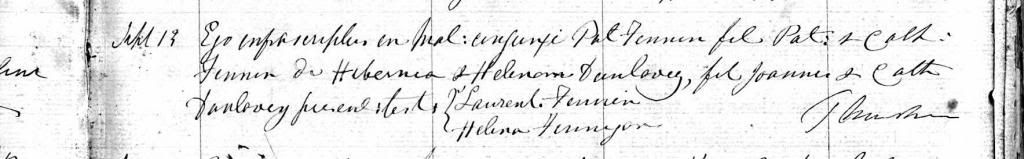 Sept 13 Ego infrascriptus in Mat: conjunxi Pat Fennen fil Pat: & Cath:
Fennen de Hibernia & Helenam Dunlavey, fil Joannis & Cath
Dunlavey presen: test: { Laurent. Fennen
Helena Fennegan